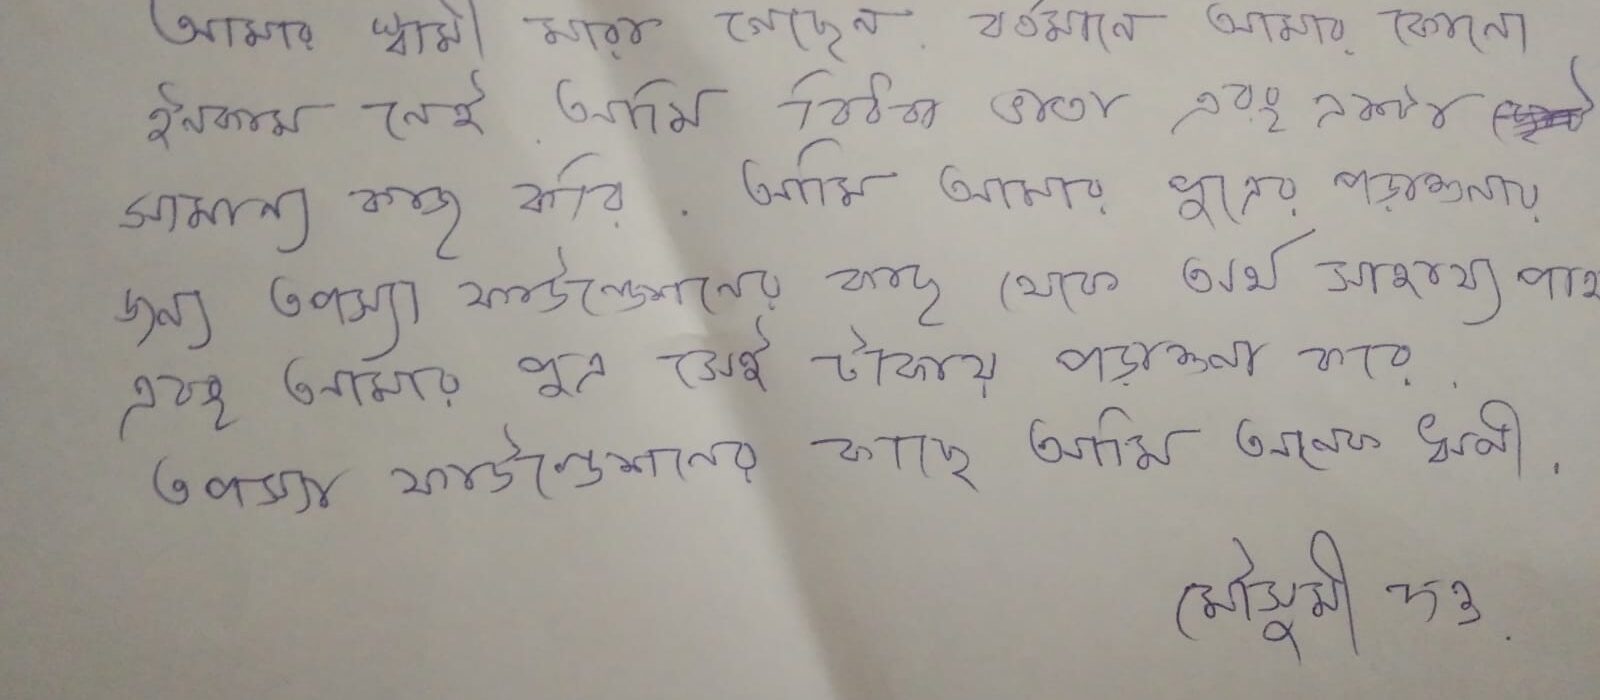 আমার স্বামী মারা গেছেন. বর্তমানে আমার কোনো
ইনকাম নেই. আমি বিধবা ভাতা এবং একটা
সামান্য কাজ করি. আমি আমার পুত্রের পড়াশুনার
জন্য তপস্যা ফাউন্ডেশনের কাছ থেকে অর্থ সাহায্য পাই
এবং আমার পুত্র সেই টাকায় পড়াশুনা করে.
তপস্যা ফাউন্ডেশনের কাছে আমি অনেক ঋণী.
মৌসুমী দত্ত.